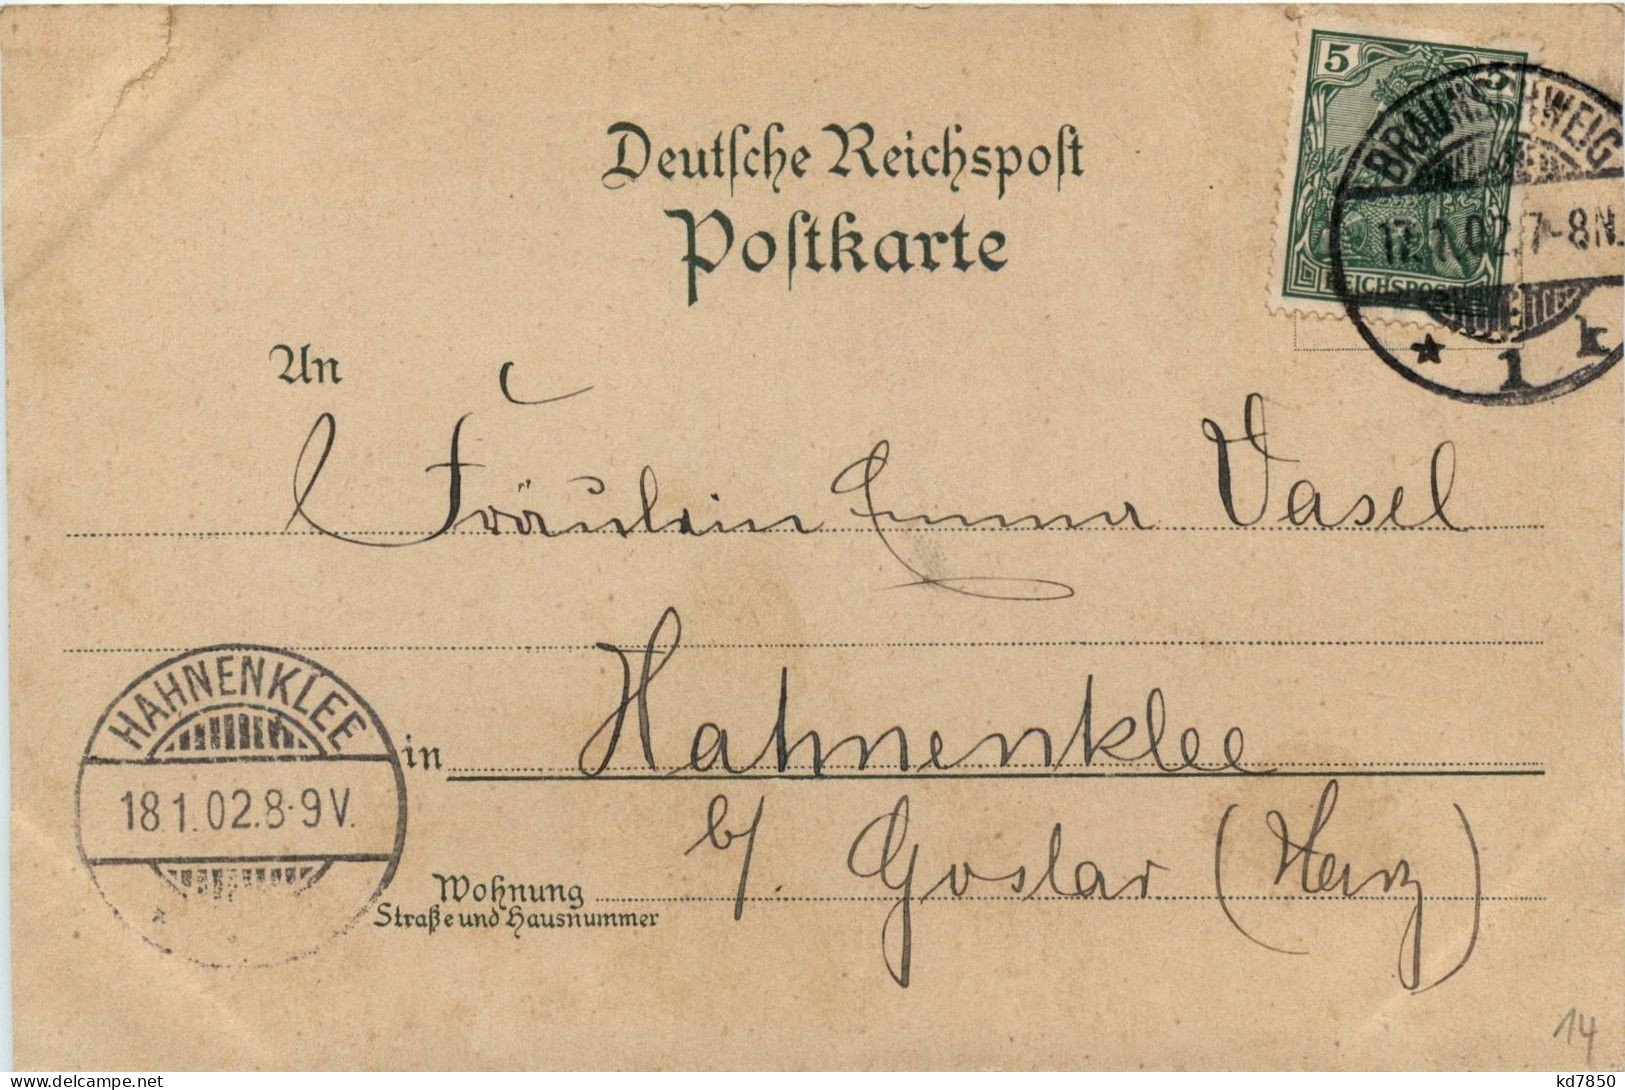 Deutsche Reichspost
Postkarte
5 5
REICHSPOST
BRAUNSCHWEIG
17.1.02.7-8N.
* 1 k
An
Fräulein Emma Vasel
in Hahnenklee
b/. Goslar (Harz)
Wohnung
Straße und Hausnummer
HAHNENKLEE
18.1.02.8-9V.
14
delcampe.net
kd7850